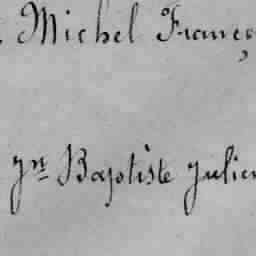 Michel Franç
Jn Baptiste Julien